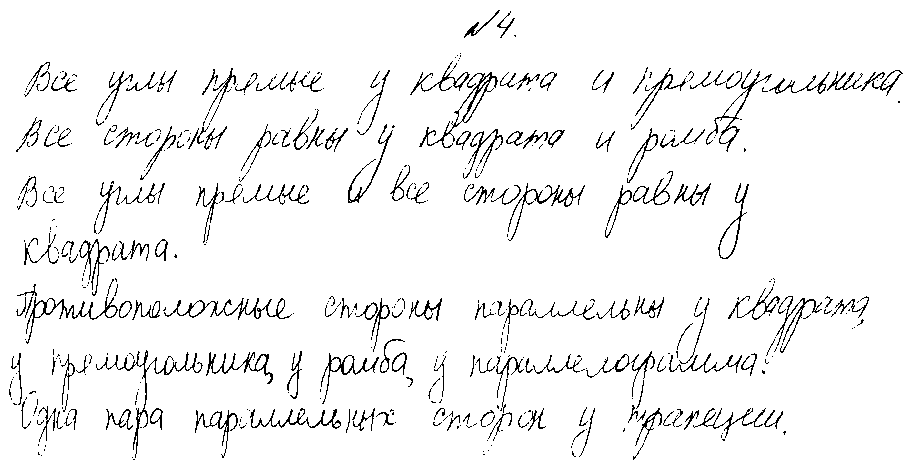 №4.
Все углы прямые у квадрата и прямоугольника.
Все стороны равны у квадрата и ромба.
Все углы прямые и все стороны равны у
квадрата.
Противоположные стороны параллельны у квадрата,
у прямоугольника, у ромба, у параллелограмма.
Одна пара параллельных сторон у трапеции.